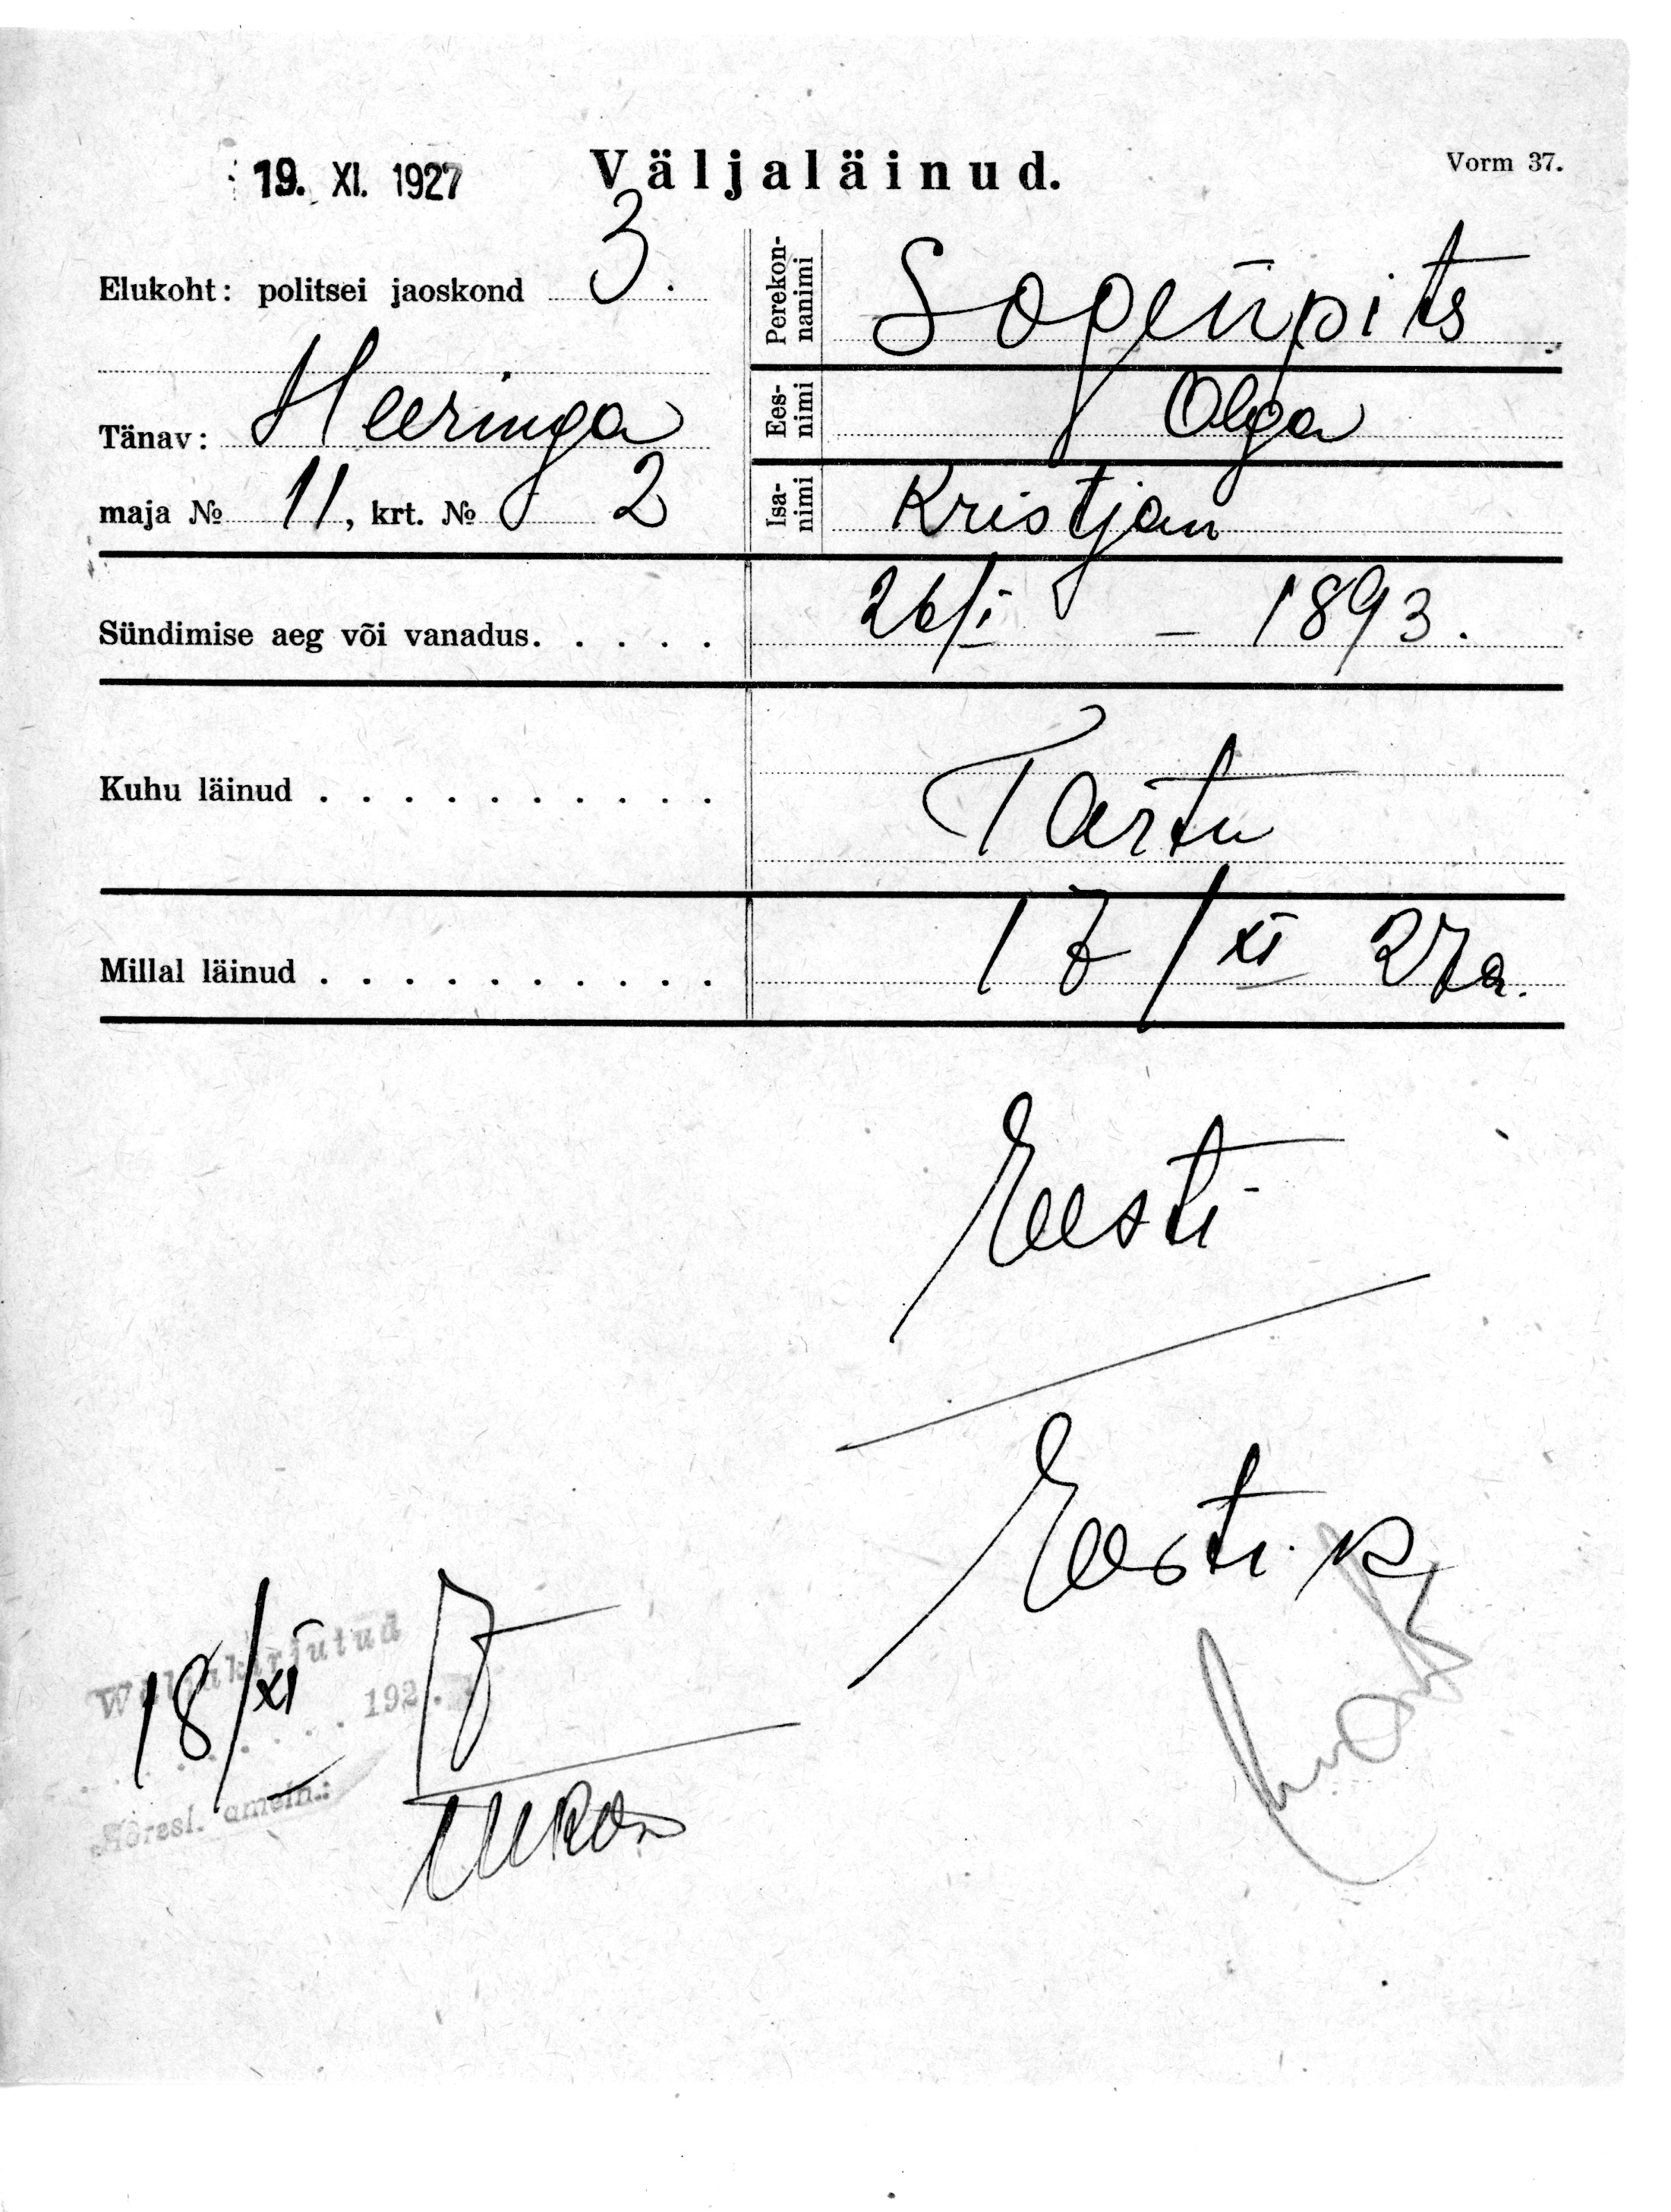 19. XI. 1927
Väljaläinud.
Vorm 37.
Elukoht: politsei jaoskond 3.
Tänav: Heeringa
maja № 11, krt. № 2
Perekonnanimi
Eesnimi Olga
Isanimi Kristjan
Sündimise aeg või vanadus. . . . . 26/I – 1893.
Kuhu läinud . . . . . . . . . . Tartu
Millal läinud . . . . . . . . . . 17/XI 27a.
Eesti
Eesti k
18/XI 7
Wäljakirjutud
192 .